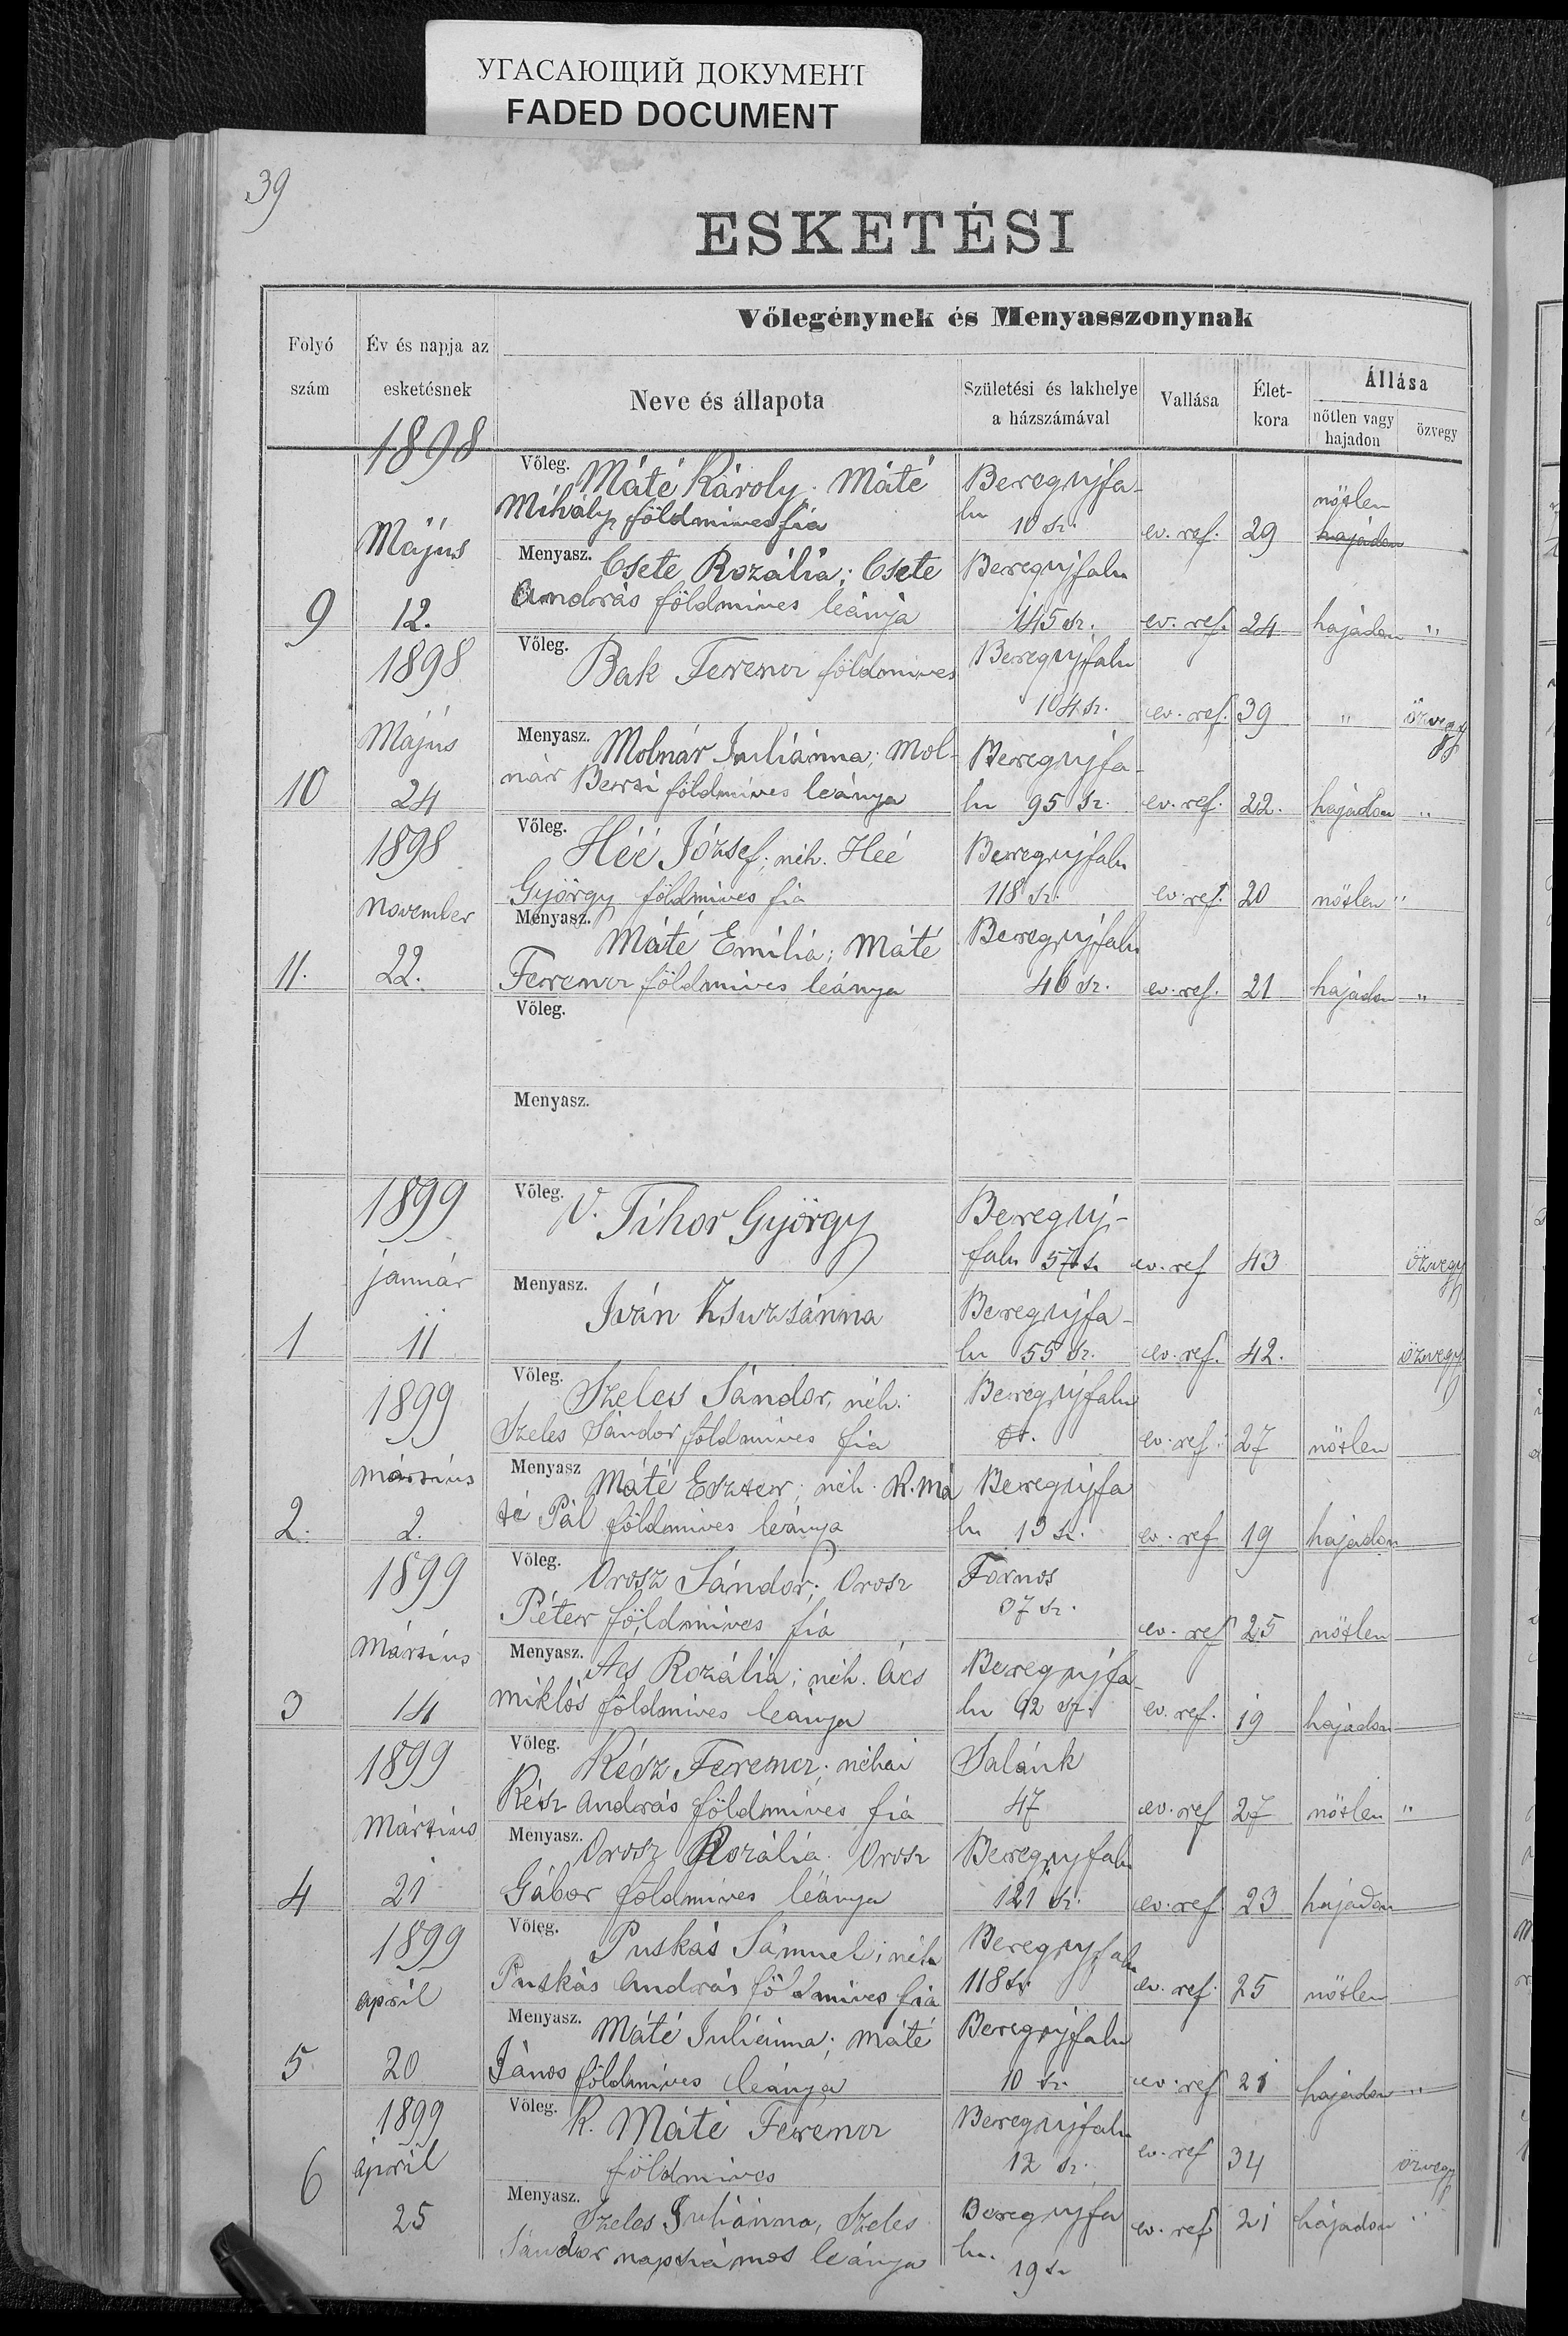 УГАСАЮЩИЙ ДОКУМЕНТ
FADED DOCUMENT
39
ESKETÉSI
Folyó szám
Év és napja az esketésnek
Vőlegénynek és Menyasszonynak
Neve és állapota
Születési és lakhelye a házszámával
Vallása
Élet-kora
Állása
nőtlen vagy hajadon
özvegy
1898
Május
9 12.
Vőleg. Máté Károly; Máté Beregujfa-
Mihály földmives fia lu 10 sz. ev. ref. 29 nőtlen hajadon
Menyasz. Csete Rozália; Csete Beregujfalu
András földmives leánya 145 sz. ev. ref. 24 hajadon "
1898
Május
10 24
Vőleg. Bak Ferencz földmives Beregujfalu
104 sz. ev. ref. 39 " özvegy
Menyasz. Molnár Juliánna; Mol- Beregujfa-
nár Berti földmives leánya lu 95 sz. ev. ref. 22. hajadon "
1898
november
11. 22.
Vőleg. Héé József; néh. Héé Beregujfalu
György földmives fia 118 sz. ev. ref. 20 nőtlen "
Menyasz. Máté Emília; Máté Beregujfalu
Ferencz földmives leánya 46 sz. ev. ref. 21 hajadon "
Vőleg.
Menyasz.
1899
január
1 11
Vőleg. V. Tihor György Bereguj-
falu 57 sz. ev. ref 43 özvegy
Menyasz. Iván Zsuzsánna Beregujfa-
lu 55 sz. ev. ref. 42. özvegy
1899
mártius
2. 2.
Vőleg. Szeles Sándor, néh. Beregujfalu
Szeles Sándor földmives fia sz. ev. ref. 27 nőtlen
Menyasz Máté Eszter; néh. K. Má Beregujfa
té Pál földmives leánya lu 13 sz. ev. ref 19 hajadon
1899
Mártius
3 14
Vőleg. Orosz Sándor; Orosz Fornos
Péter földmives fia 37 sz. ev. ref 25 nőtlen
Menyasz. Ács Rozália; néh. Ács Beregujfa-
Miklós földmives leánya lu 92 sz. ev. ref. 19 hajadon
1899
Mártius
4 21
Vőleg. Kész Ferencz; néhai Salánk
Kész András földmives fia 47 ev. ref 27 nőtlen "
Menyasz. Orosz Rozália. Orosz Beregujfalu
Gábor földmives leánya 121 sz. ev. ref. 23 hajadon
1899
april
5 20
Vőleg. Puskás Sámuel; néh. Beregujfalu
Puskás András földmives fia 118 sz. ev. ref. 25 nőtlen
Menyasz. Máté Juliánna; Máté Beregujfalu
János földmives leánya 10 sz. ev. ref 21 hajadon "
1899
april
6 25
Vőleg. K. Máté Ferencz Beregujfalu
földmives 12 sz. ev. ref 34 özvegy
Menyasz. Szeles Juliánna, Szeles Beregujfa
Sándor napszámos leánya lu. 19 sz ev. ref 21 hajadon "